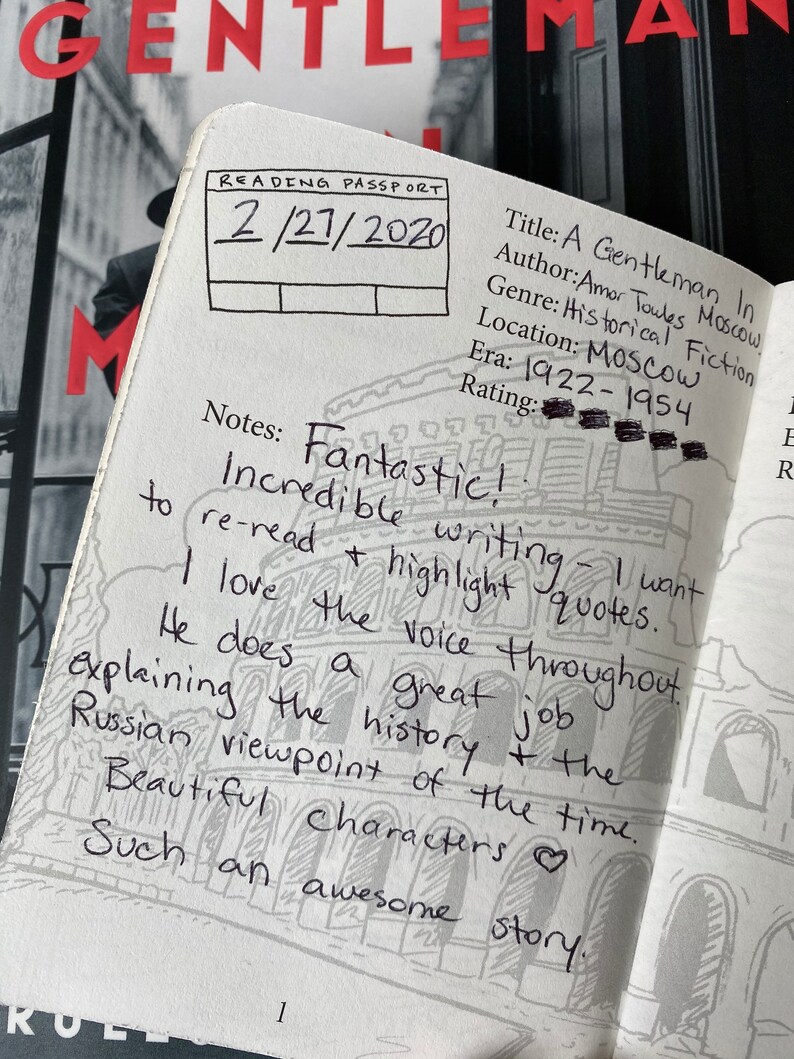 GENTLEMAN
N
M
READING PASSPORT
2/27/2020
Title: A Gentleman In
Moscow.
Author: Amor Towles
Genre: Historical Fiction
Location: Moscow
Era: 1922-1954
Rating:
Notes: Fantastic!
Incredible writing - I want
to re-read + highlight quotes.
I love the voice throughout.
He does a great job
explaining the history + the
Russian viewpoint of the time.
Beautiful characters ♡
Such an awesome story.
1
E
R
RULES